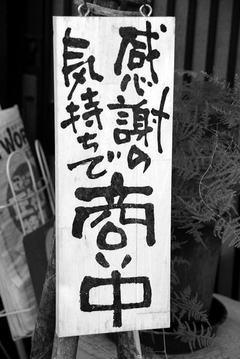 感謝の
気持ちで
商い中
WOR